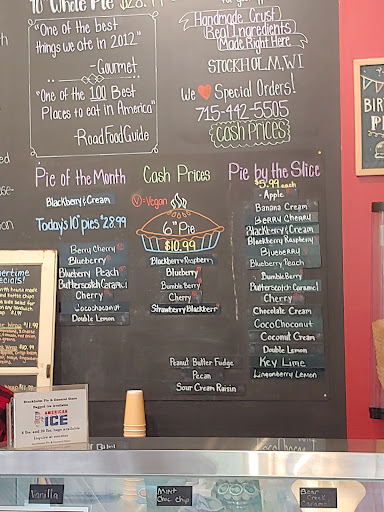 10" Whole Pie $28.99
"One of the best
things we ate in 2012"
-Gourmet
"One of the 100 Best
Places to eat in America"
-RoadFoodGuide
Handmade Crust
Real Ingredients
Made Right Here
STOCKHOLM, WI
We ❤ Special Orders!
715-442-5505
Cash Prices
Pie of the Month
Blackberry & Cream
Today's 10" pies $28.99
Berry Cherry
Blueberry
Blueberry Peach
Butterscotch Caramel
Cherry
Cocochoconut
Double Lemon
Cash Prices
V = Vegan
6" Pie
$10.99
Blackberry Raspberry
Blueberry
BumbleBerry
Cherry
Strawberry Blackberr
Peanut Butter Fudge
Pecan
Sour Cream Raisin
Pie by the Slice
$5.99 each
- Apple
Banana Cream
Berry Cherry
Blackberry & Cream
Blackberry Raspberry
Blueberry
Blueberry Peach
BumbleBerry
Butterscotch Caramel
Cherry
Chocolate Cream
CocoChoconut
Coconut Cream
Double Lemon
Key Lime
Lingonberry Lemon
Stockholm Pie & General Store
AMERICAN
ICE
Vanilla
Mint
Choc Chip
Bear
Creek
Caramel